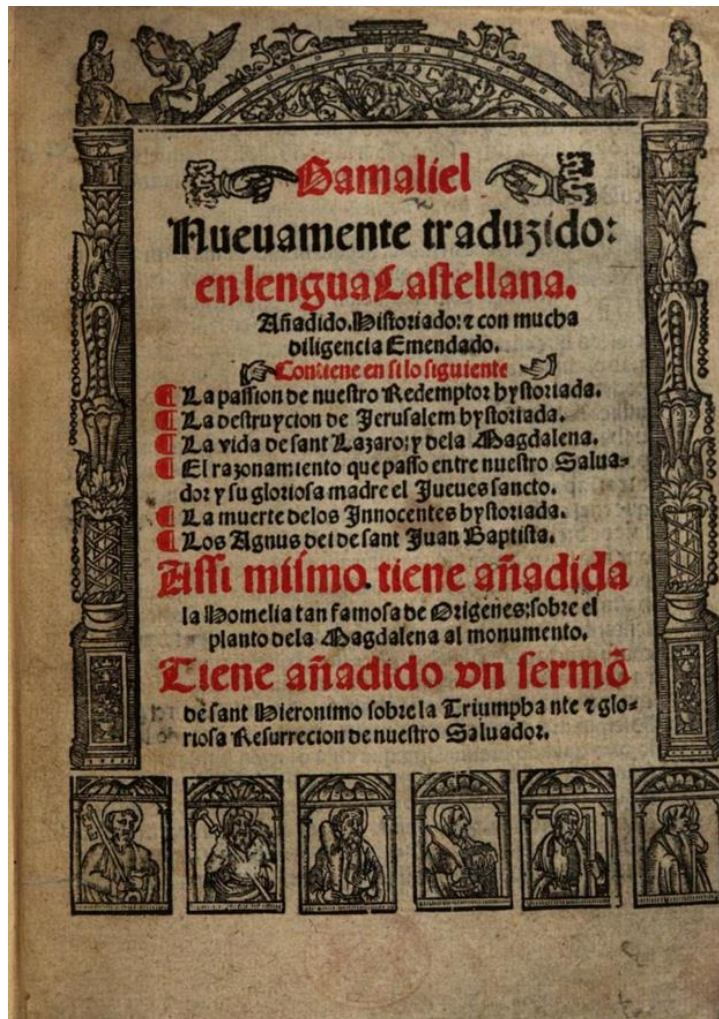 Gamaliel
Nueuamente traduzido:
en lengua Castellana.
Añadido. Historiado: ⁊ con mucha
diligencia Emendado.
Contiene en si lo siguiente
¶ La passion de nuestro Redemptor hystoriada.
¶ La destruycion de Jerusalem hystoriada.
¶ La vida de sant Lazaro: y dela Magdalena.
¶ El razonamiento que passo entre nuestro Salua-
dor y su gloriosa madre el Jueues sancto.
¶ La muerte delos Innocentes hystoriada.
¶ Los Agnus dei de sant Juan Baptista.
Assi mismo. tiene añadida
la Homelia tan famosa de Origenes: sobre el
planto dela Magdalena al monumento.
Tiene añadido vn sermõ
de sant Hieronimo sobre la Triumpha nte ⁊ glo-
riosa Resurrecion de nuestro Saluador.